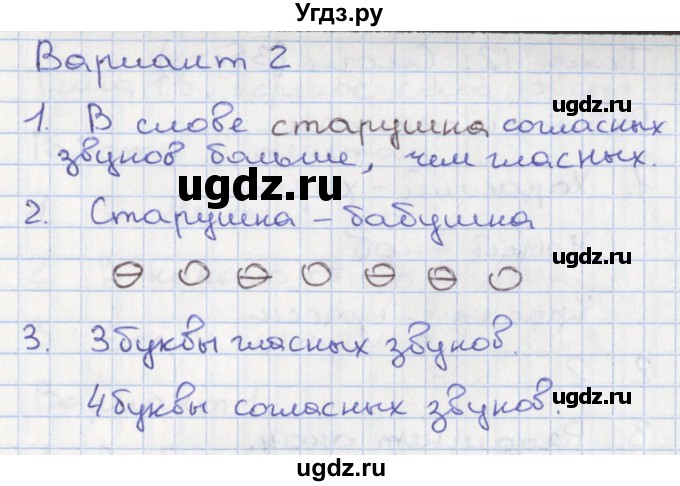 Угдз.ру
Вариант 2
1. В слове старушка согласных
ugdz.ru
звуков больше, чем гласных.
ugdz.ru
ugdz.ru
2. Старушка – бабушка
ugdz.ru
ugdz.ru
3. 3 буквы гласных звуков.
ugdz.ru
4 буквы согласных звуков.
ugdz.ru
ugdz.ru